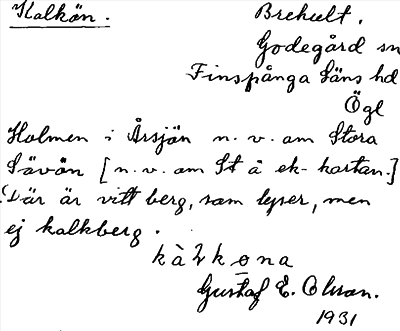 Kalkön. Brehult.
Godegård sn
Finspånga läns hd
Ögl
Holmen i Årsjön n.v. om Stora
Lövön [n.v. om St å ek-kartan.]
Där är vitt berg, som lyser, men
ej kalkberg.
Gustaf E. Olsson.
1931